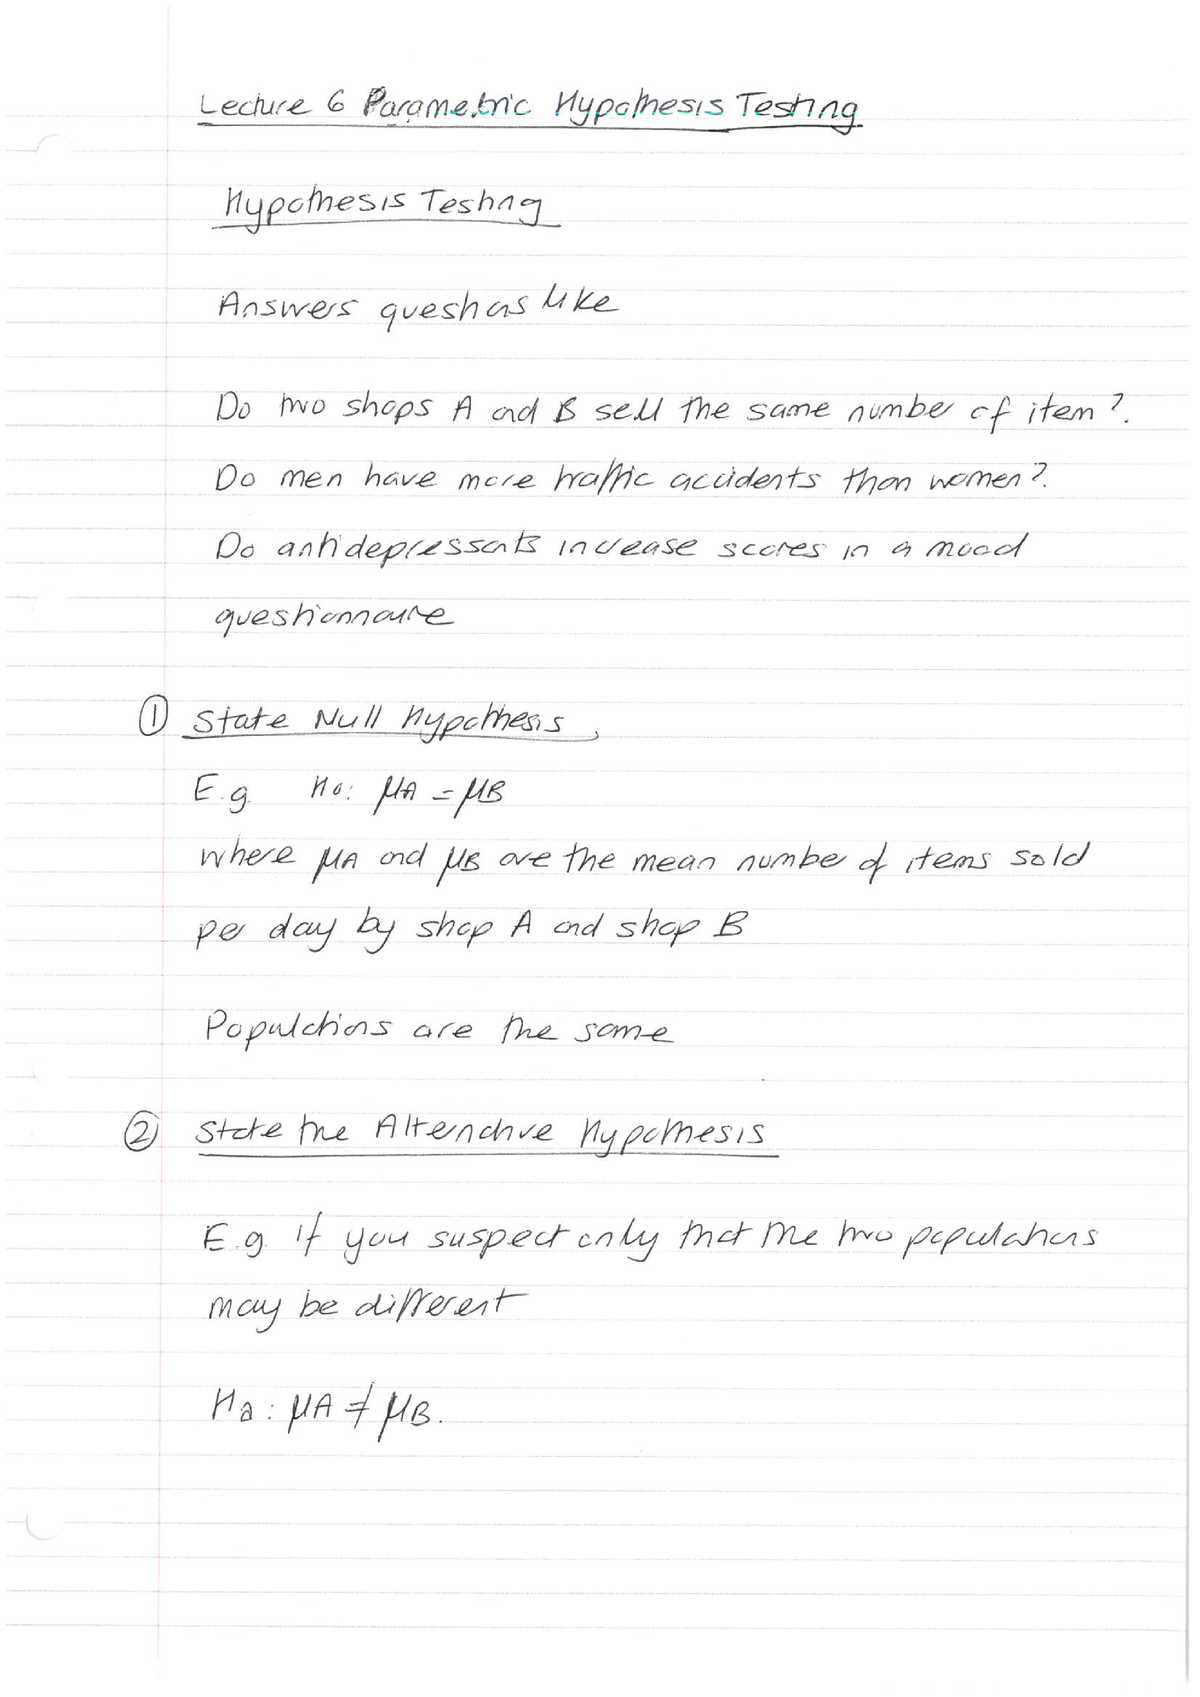 Lecture 6 Parametric Hypothesis Testing
Hypothesis Testing
Answers questions like
Do two shops A and B sell the same number of item?.
Do men have more traffic accidents than women?.
Do antidepressants increase scores in a mood
questionnaire
① State Null Hypothesis
E.g. Ho: μA = μB
where μA and μB are the mean number of items sold
per day by shop A and shop B
Populations are the same
② State the Alternative Hypothesis
E.g. if you suspect only that the two populations
may be different
Ha: μA ≠ μB.